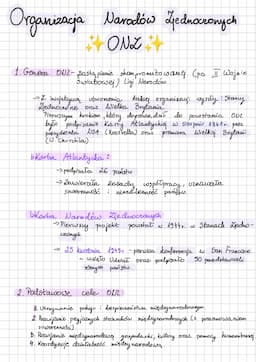 Organizacja Narodów Zjednoczonych
ONZ
1. Geneza ONZ - zastąpienie skompromitowanej (po II Wojnie
Światowej) Ligi Narodów
→ Z inicjatywą utworzenia takiej organizacji wyszły: Stany
Zjednoczone oraz Wielka Brytania.
Pierwszym krokiem, który doprowadził do powstania ONZ
było podpisanie Karty Atlantyckiej w sierpniu 1941r. przez
prezydenta USA (Roosevelta) oraz premiera Wielkiej Brytanii
(W. Churchila)
Karta Atlantycka:
→ podpisało 26 państw
→ zawierała zasady współpracy, uznawała
suwerenność i niepodległość państw.
Karta Narodów Zjednoczonych
→ Pierwszy projekt powstał w 1944r. w Stanach Zjedno-
czonych
→ 25 kwietnia 1945r. - pierwsza konferencja w San Francisco
- wzięło udział oraz podpisało 50 przedstawicieli
państw
2. Podstawowe cele ONZ:
1. Utrzymanie pokoju i bezpieczeństwa międzynarodowego
2. Rozwijanie przyjaznych stosunków międzynarodowych
3. Rozwiązanie międzynarodowej gospodarki, kultury oraz pomocy humanitarnej
4. Koordynuje działalność międzynarodową